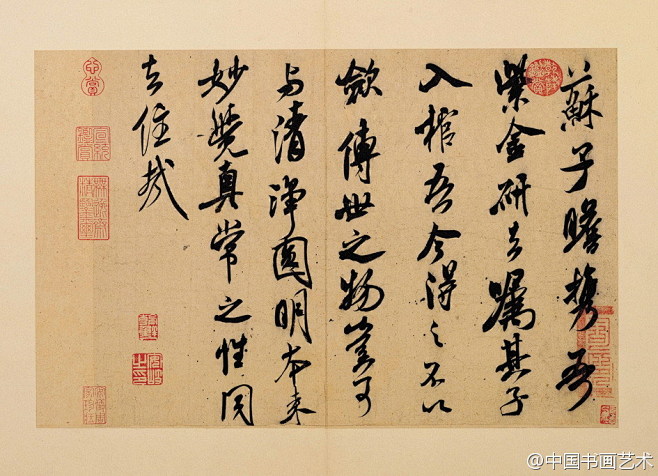 蘇子瞻携吾
紫金研去嘱其子
入棺吾今得之不以
斂傳世之物豈可
与清淨圓明本来
妙覺真常之性同
去住哉
@中国书画艺术